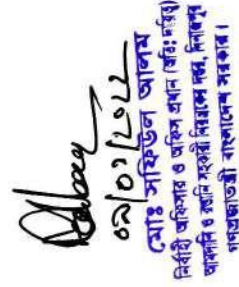 ০৯/০১/২০২২
মোঃ সফিউল আলম
নির্বাহী অফিসার ও অফিস প্রধান (অতি: দায়িত্ব)
আমদানি ও রপ্তানি সহকারী নিয়ন্ত্রকের দপ্তর, দিনাজপুর
গণপ্রজাতন্ত্রী বাংলাদেশ সরকার।